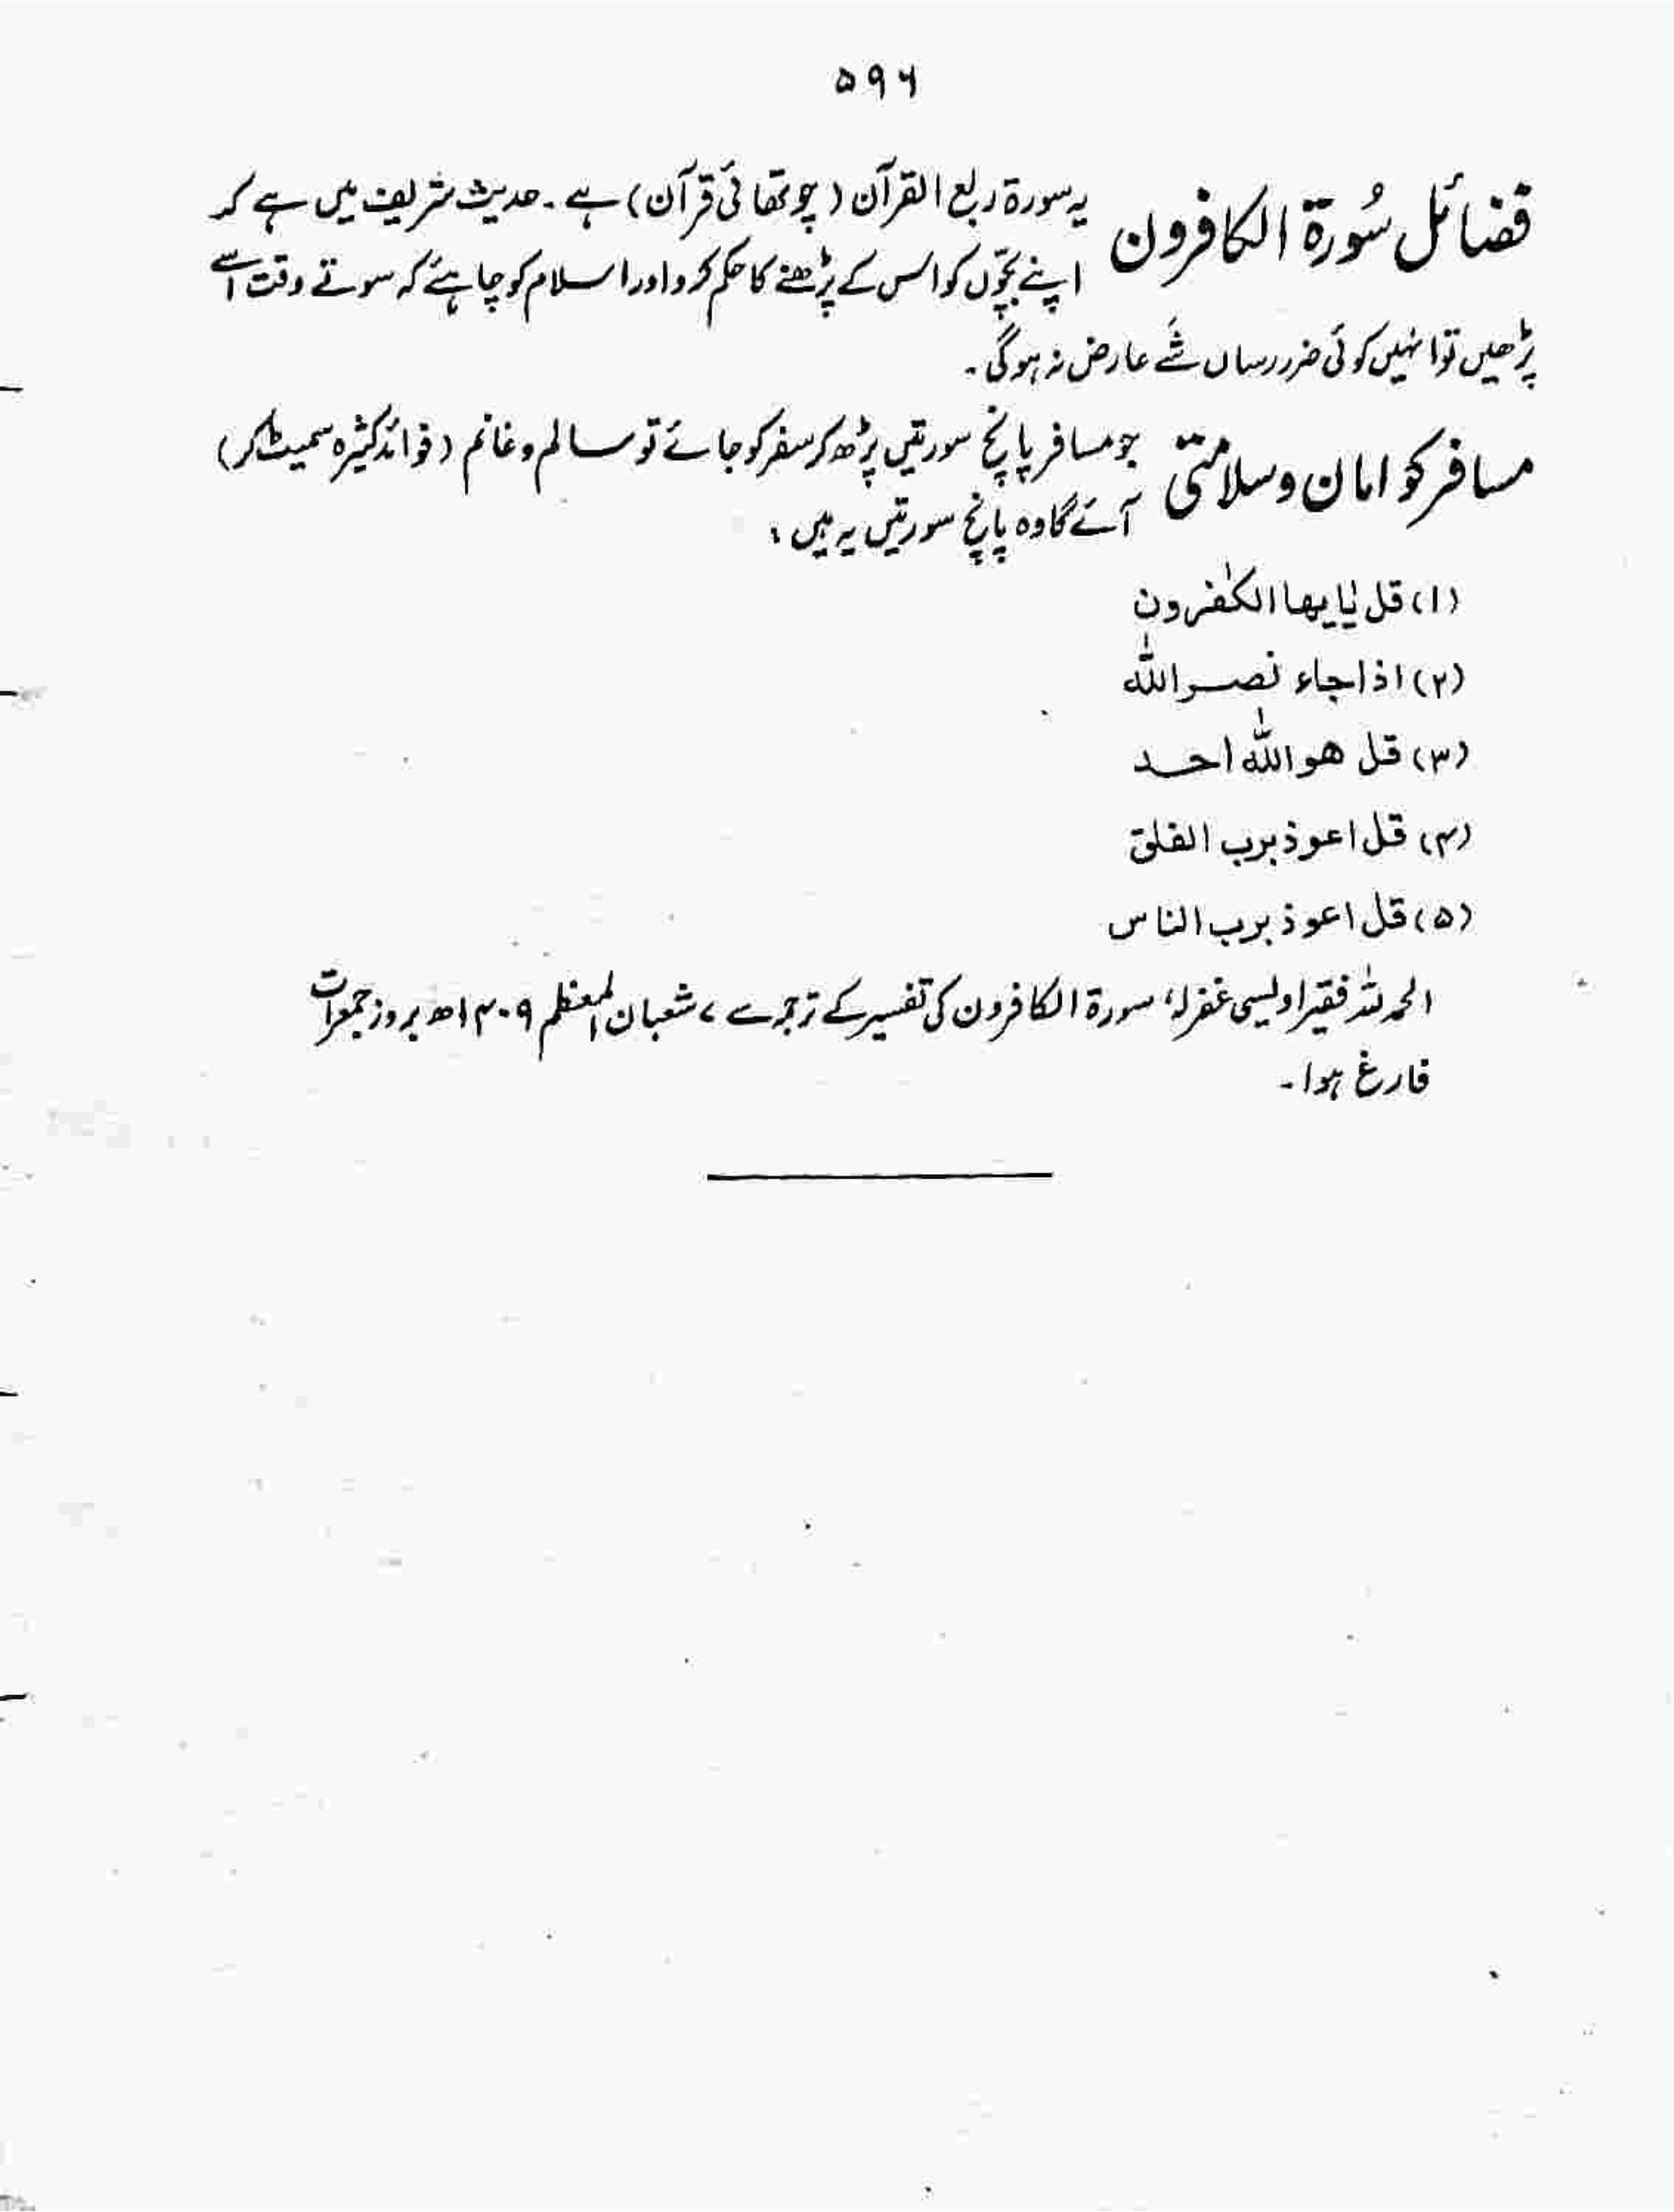 ۵۹۶
فضائل سُورۃ الکافرون یہ سورۃ ربع القرآن (چوتھائی قرآن) ہے۔ حدیث شریف میں ہے کہ
اپنے بچّوں کو اس کے پڑھنے کا حکم کرو اور اسلام کو چاہئے کہ سوتے وقت اسے
پڑھیں تو انہیں کوئی ضرر رساں شَے عارض نہ ہوگی۔
مسافر کو امان و سلامتی جو مسافر پانچ سورتیں پڑھ کر سفر کو جائے تو سالم و غانم (فوائد کثیرہ سمیٹ کر)
آئے گا وہ پانچ سورتیں یہ ہیں :
(۱) قل یٰایھا الکٰفرون
(۲) اذا جاء نصر اللّٰہ
(۳) قل ھو اللّٰہ احد
(۴) قل اعوذ برب الفلق
(۵) قل اعوذ برب الناس
الحمد للہ فقیر اویسی غفرلہٗ سورۃ الکافرون کی تفسیر کے ترجمہ سے ۷ شعبان المعظم ۱۴۰۹ھ بروز جمعرات
فارغ ہوا۔